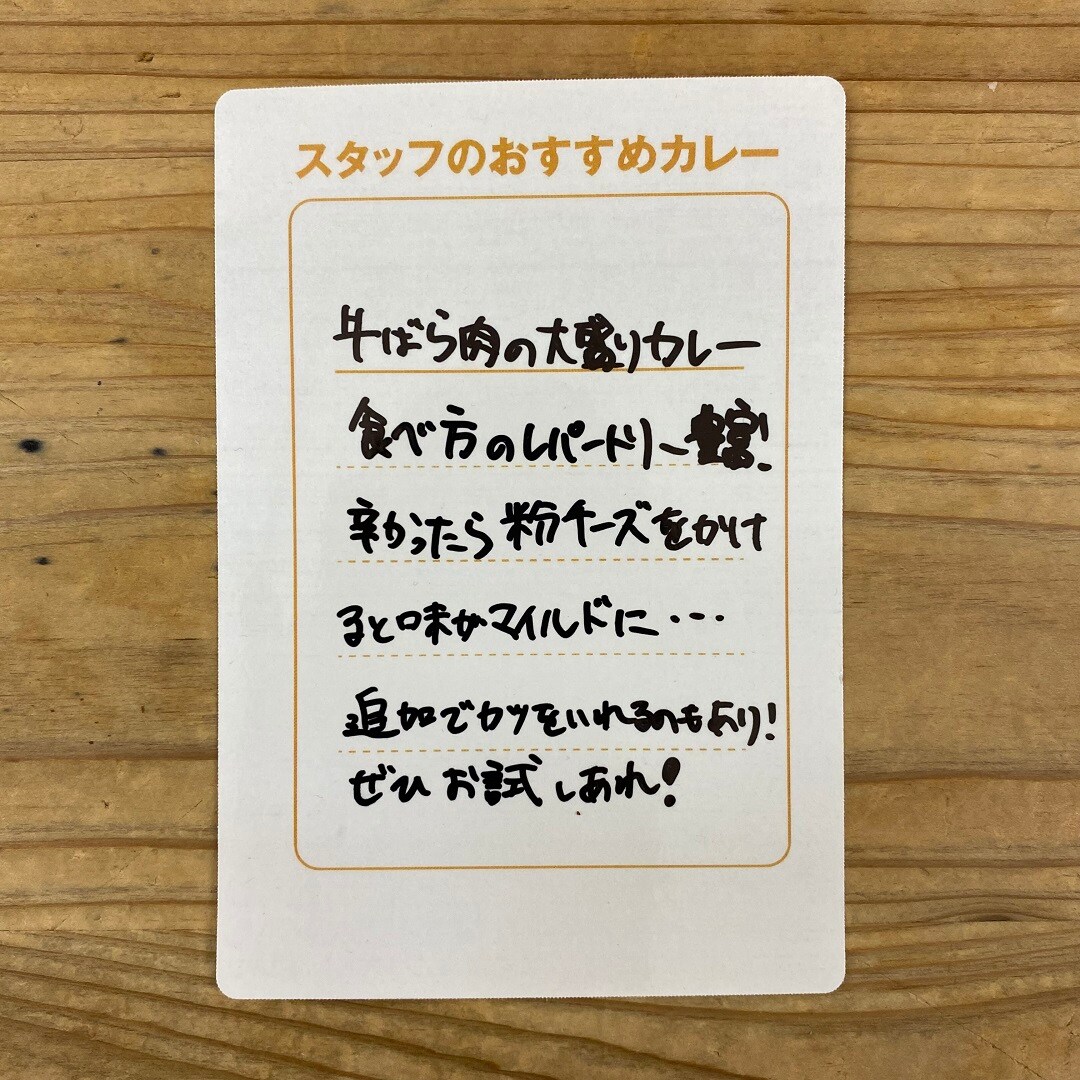 スタッフのおすすめカレー
牛ばら肉の大盛りカレー
食べ方のレパートリー豊富!
辛かったら粉チーズをかけ
ると味がマイルドに・・・
追加でカツをいれるのもあり!
ぜひお試しあれ!